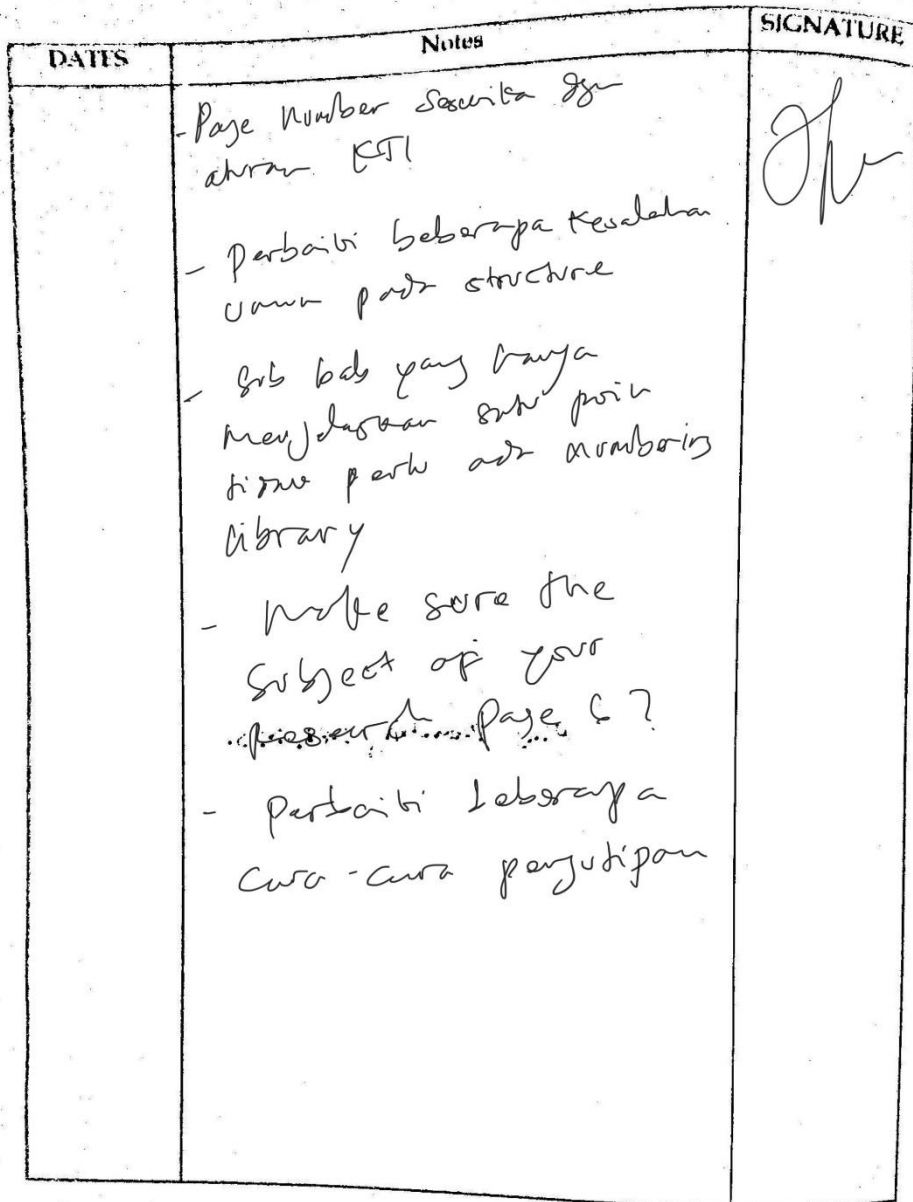 DATES Notes SIGNATURE
- Page Number Sesuika dgn
aturan KTI
- Perbaiki beberapa Kesalahan
umum pada structure
- Sub bab yang hanya
menjelaskan satu poin
perlu ada numbering
library
- Make sure the
subject of your
research page 6?
- Perbaiki beberapa
cara-cara pengutipan